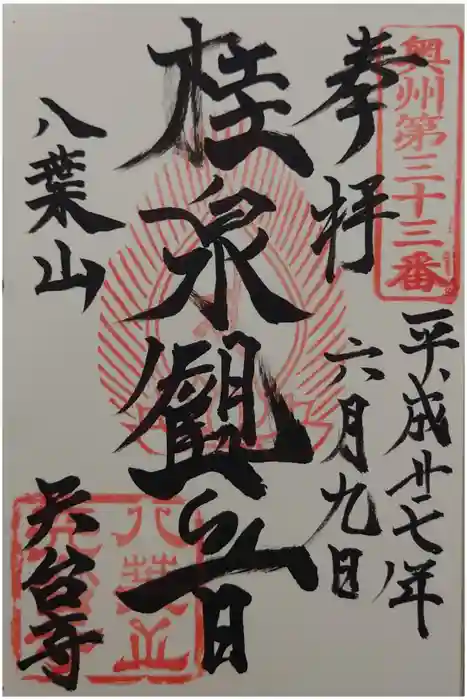 奥州第三十三番
奉拝
平成廿七年
六月九日
桂泉観音
八葉山
天台寺
八葉山
天台寺